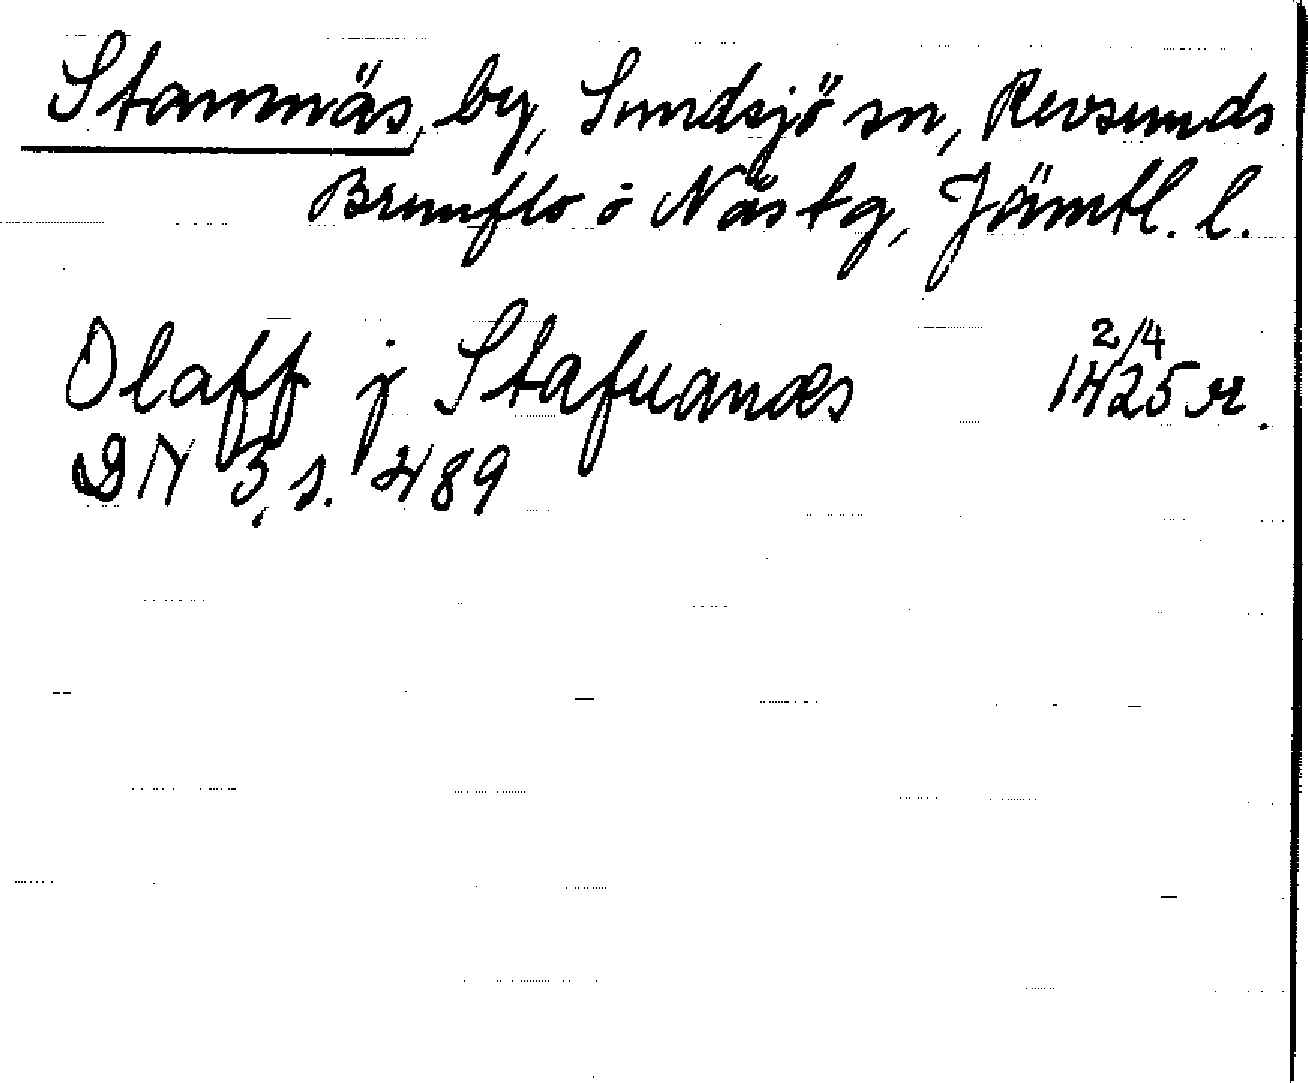 Stamnäs, by, Sundsjö sn, Revsunds
Brunflo o Näs tg, Jämtl. l.
Olaff j Stafuanæs 2/4 1425 or.
DN 3, s. 489